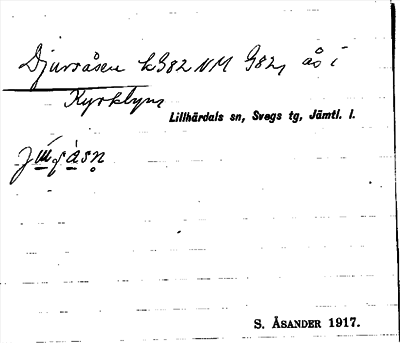 Djursåsen k382 NM 982, ås i
Kyrkbyn
Lillhärdals sn, Svegs tg, Jämtl. l.
S. ÅSANDER 1917.